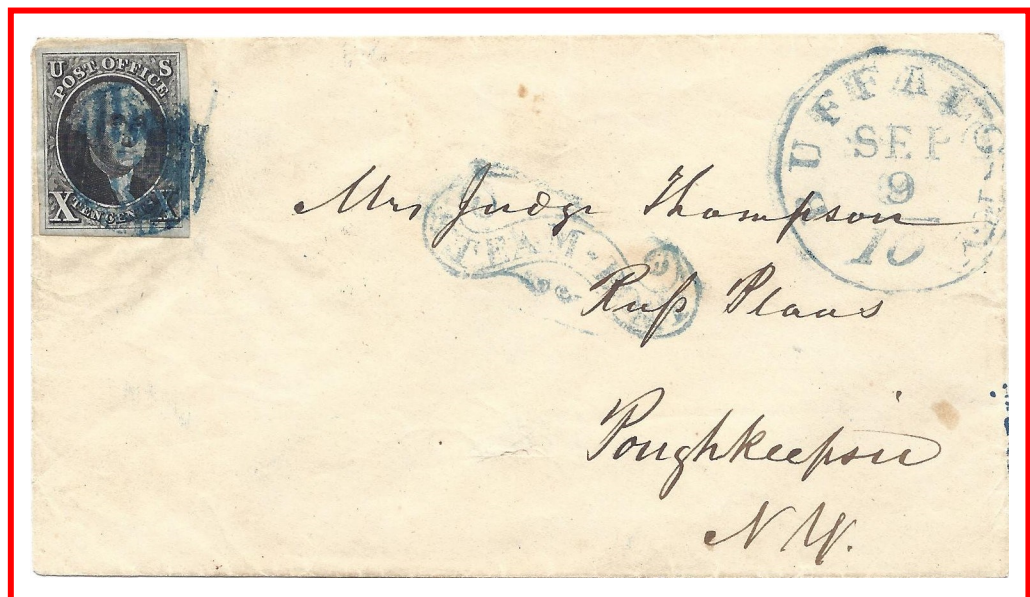 U S
POST OFFICE
X TEN CENTS X
BUFFALO N.Y.
SEP
9
10
STEAM-BOAT
Mrs Judge Thompson
Russ Plaas
Poughkeepsie
N Y.